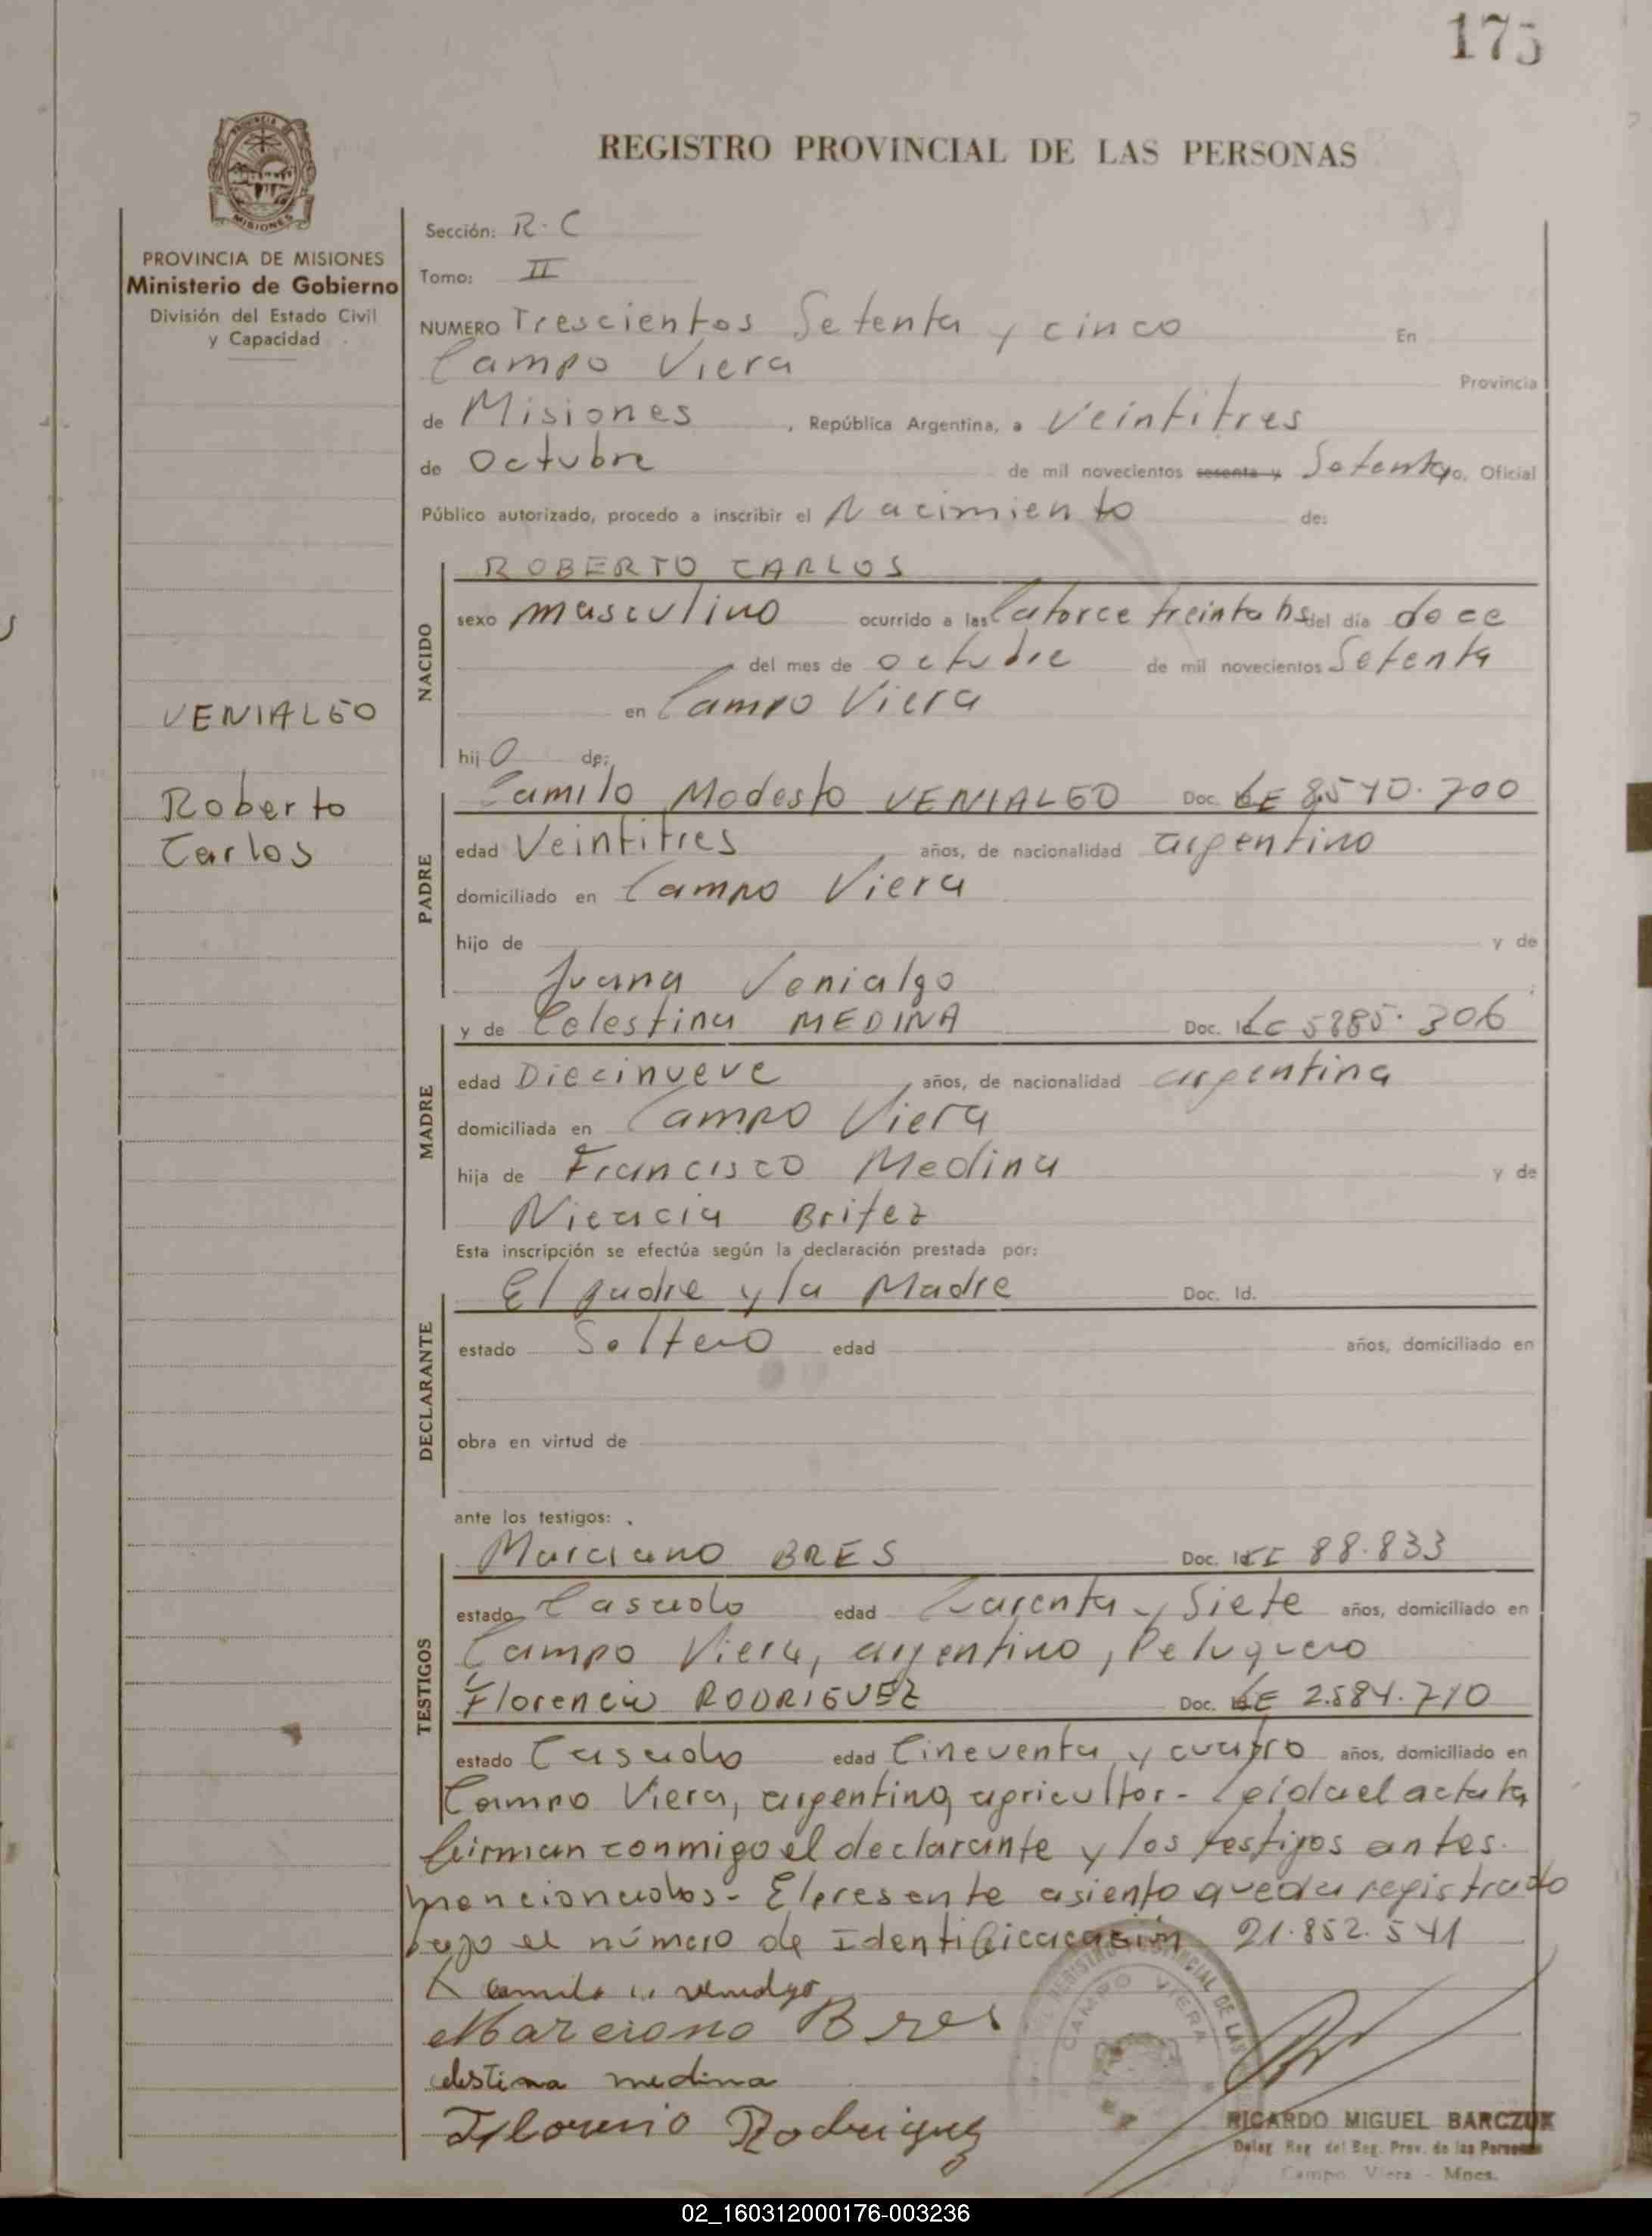 175
REGISTRO PROVINCIAL DE LAS PERSONAS
PROVINCIA DE MISIONES
Ministerio de Gobierno
División del Estado Civil
y Capacidad
Sección: R.C
Tomo: II
NUMERO Trescientos Setenta y cinco En
Campo Viera Provincia
de Misiones , República Argentina, a Veintitres
de Octubre de mil novecientos sesenta y Setenta yo, Oficial
Público autorizado, procedo a inscribir el Nacimiento de:
NACIDO
ROBERTO CARLOS
sexo masculino ocurrido a las Catorce treinta hs del día doce
del mes de octubre de mil novecientos Setenta
en Campo Viera
hijo de:
VENIALGO
Roberto
Carlos
PADRE
Camilo Modesto VENIALGO Doc. LE 8.540.700
edad Veintitres años, de nacionalidad argentino
domiciliado en Campo Viera
hijo de y de
Juana Venialgo
MADRE
y de Celestina MEDINA Doc. Id. LC 5885.306
edad Diecinueve años, de nacionalidad argentina
domiciliada en Campo Viera
hija de Francisco Medina y de
Britez
Esta inscripción se efectúa según la declaración prestada por:
DECLARANTE
El padre y la Madre Doc. Id.
estado Soltero edad años, domiciliado en
obra en virtud de
ante los testigos:
TESTIGOS
Marciano BRES Doc. Id. CI 88.833
estado Casado edad Cuarenta y Siete años, domiciliado en
Campo Viera, argentino, Peluquero
Florencio RODRIGUEZ Doc. LE 2.584.710
estado Casado edad Cincuenta y cuatro años, domiciliado en
Campo Viera, argentino, agricultor - Leida el acta la
firman conmigo el declarante y los testigos antes
mencionados - El presente asiento queda registrado
bajo el número de Identificacación 21.852.541
Marciano Bres
celestina medina
Florencio Rodriguez
REGISTRO PROVINCIAL DE LAS
CAMPO VIERA
RICARDO MIGUEL BARCZUK
Deleg. Reg. del Reg. Prov. de las Personas
Campo Viera - Mnes.
02_160312000176-003236